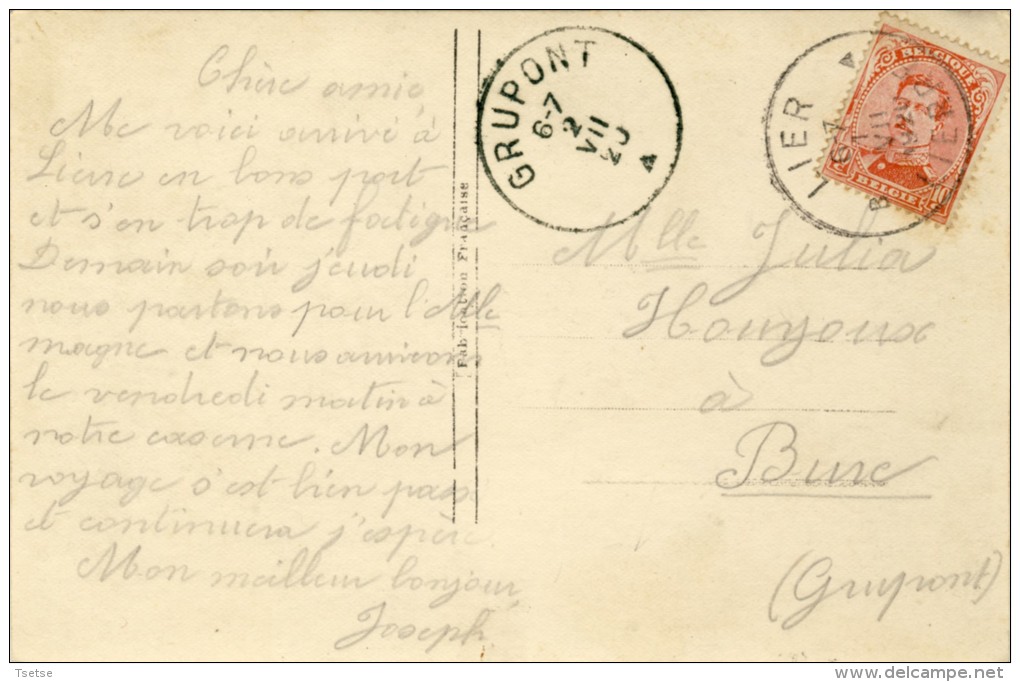 Chère amie,
Me voici arrivé à
Lierre en bons port
et s'en trop de fatigue
Demain soir jeudi
nous partons pour l'Alle
magne et nous arriverons
le vendredi matin à
notre caserne. Mon
voyage s'est bien passé
et continuera j'espère.
Mon meilleur bonjour,
Joseph.
Fabrication Française
GRUPONT
6-7
2
VII
20
LIER
6-7
1
VII
BELGIQUE
BELGIE
10
Mlle Julia
Houyoux
à
Bure
(Grupont)
Tsetse
www.delcampe.net